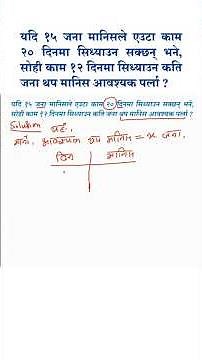 यदि १५ जना मानिसले एउटा काम
२० दिनमा सिध्याउन सक्छन् भने,
सोही काम १२ दिनमा सिध्याउन कति
जना थप मानिस आवश्यक पर्ला ?
यदि १५ जना मानिसले एउटा काम २० दिनमा सिध्याउन सक्छन् भने,
सोही काम १२ दिनमा सिध्याउन कति जना थप मानिस आवश्यक पर्ला ?
Solution यहाँ,
मानौं, आवश्यक थप मानिस = x जना.
दिन मानिस